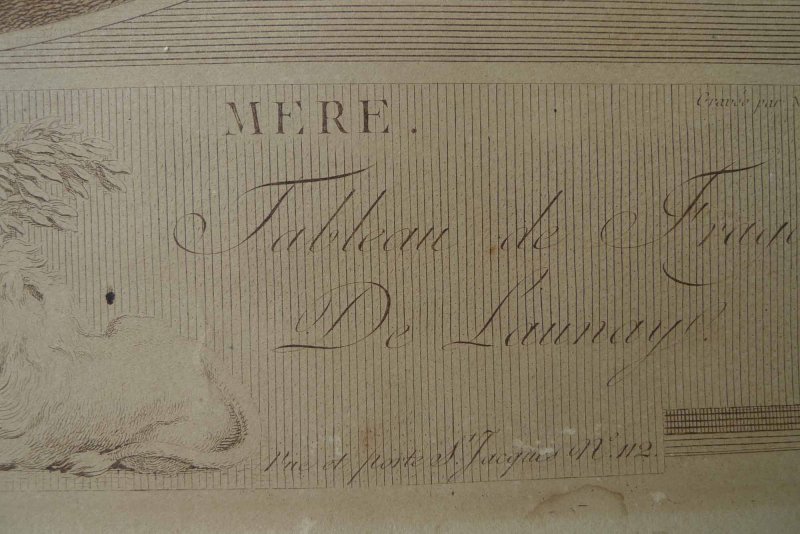 MERE.
Gravée par N
Tableau de Frago
De Launay
rue et porte St. Jacques No. 112.